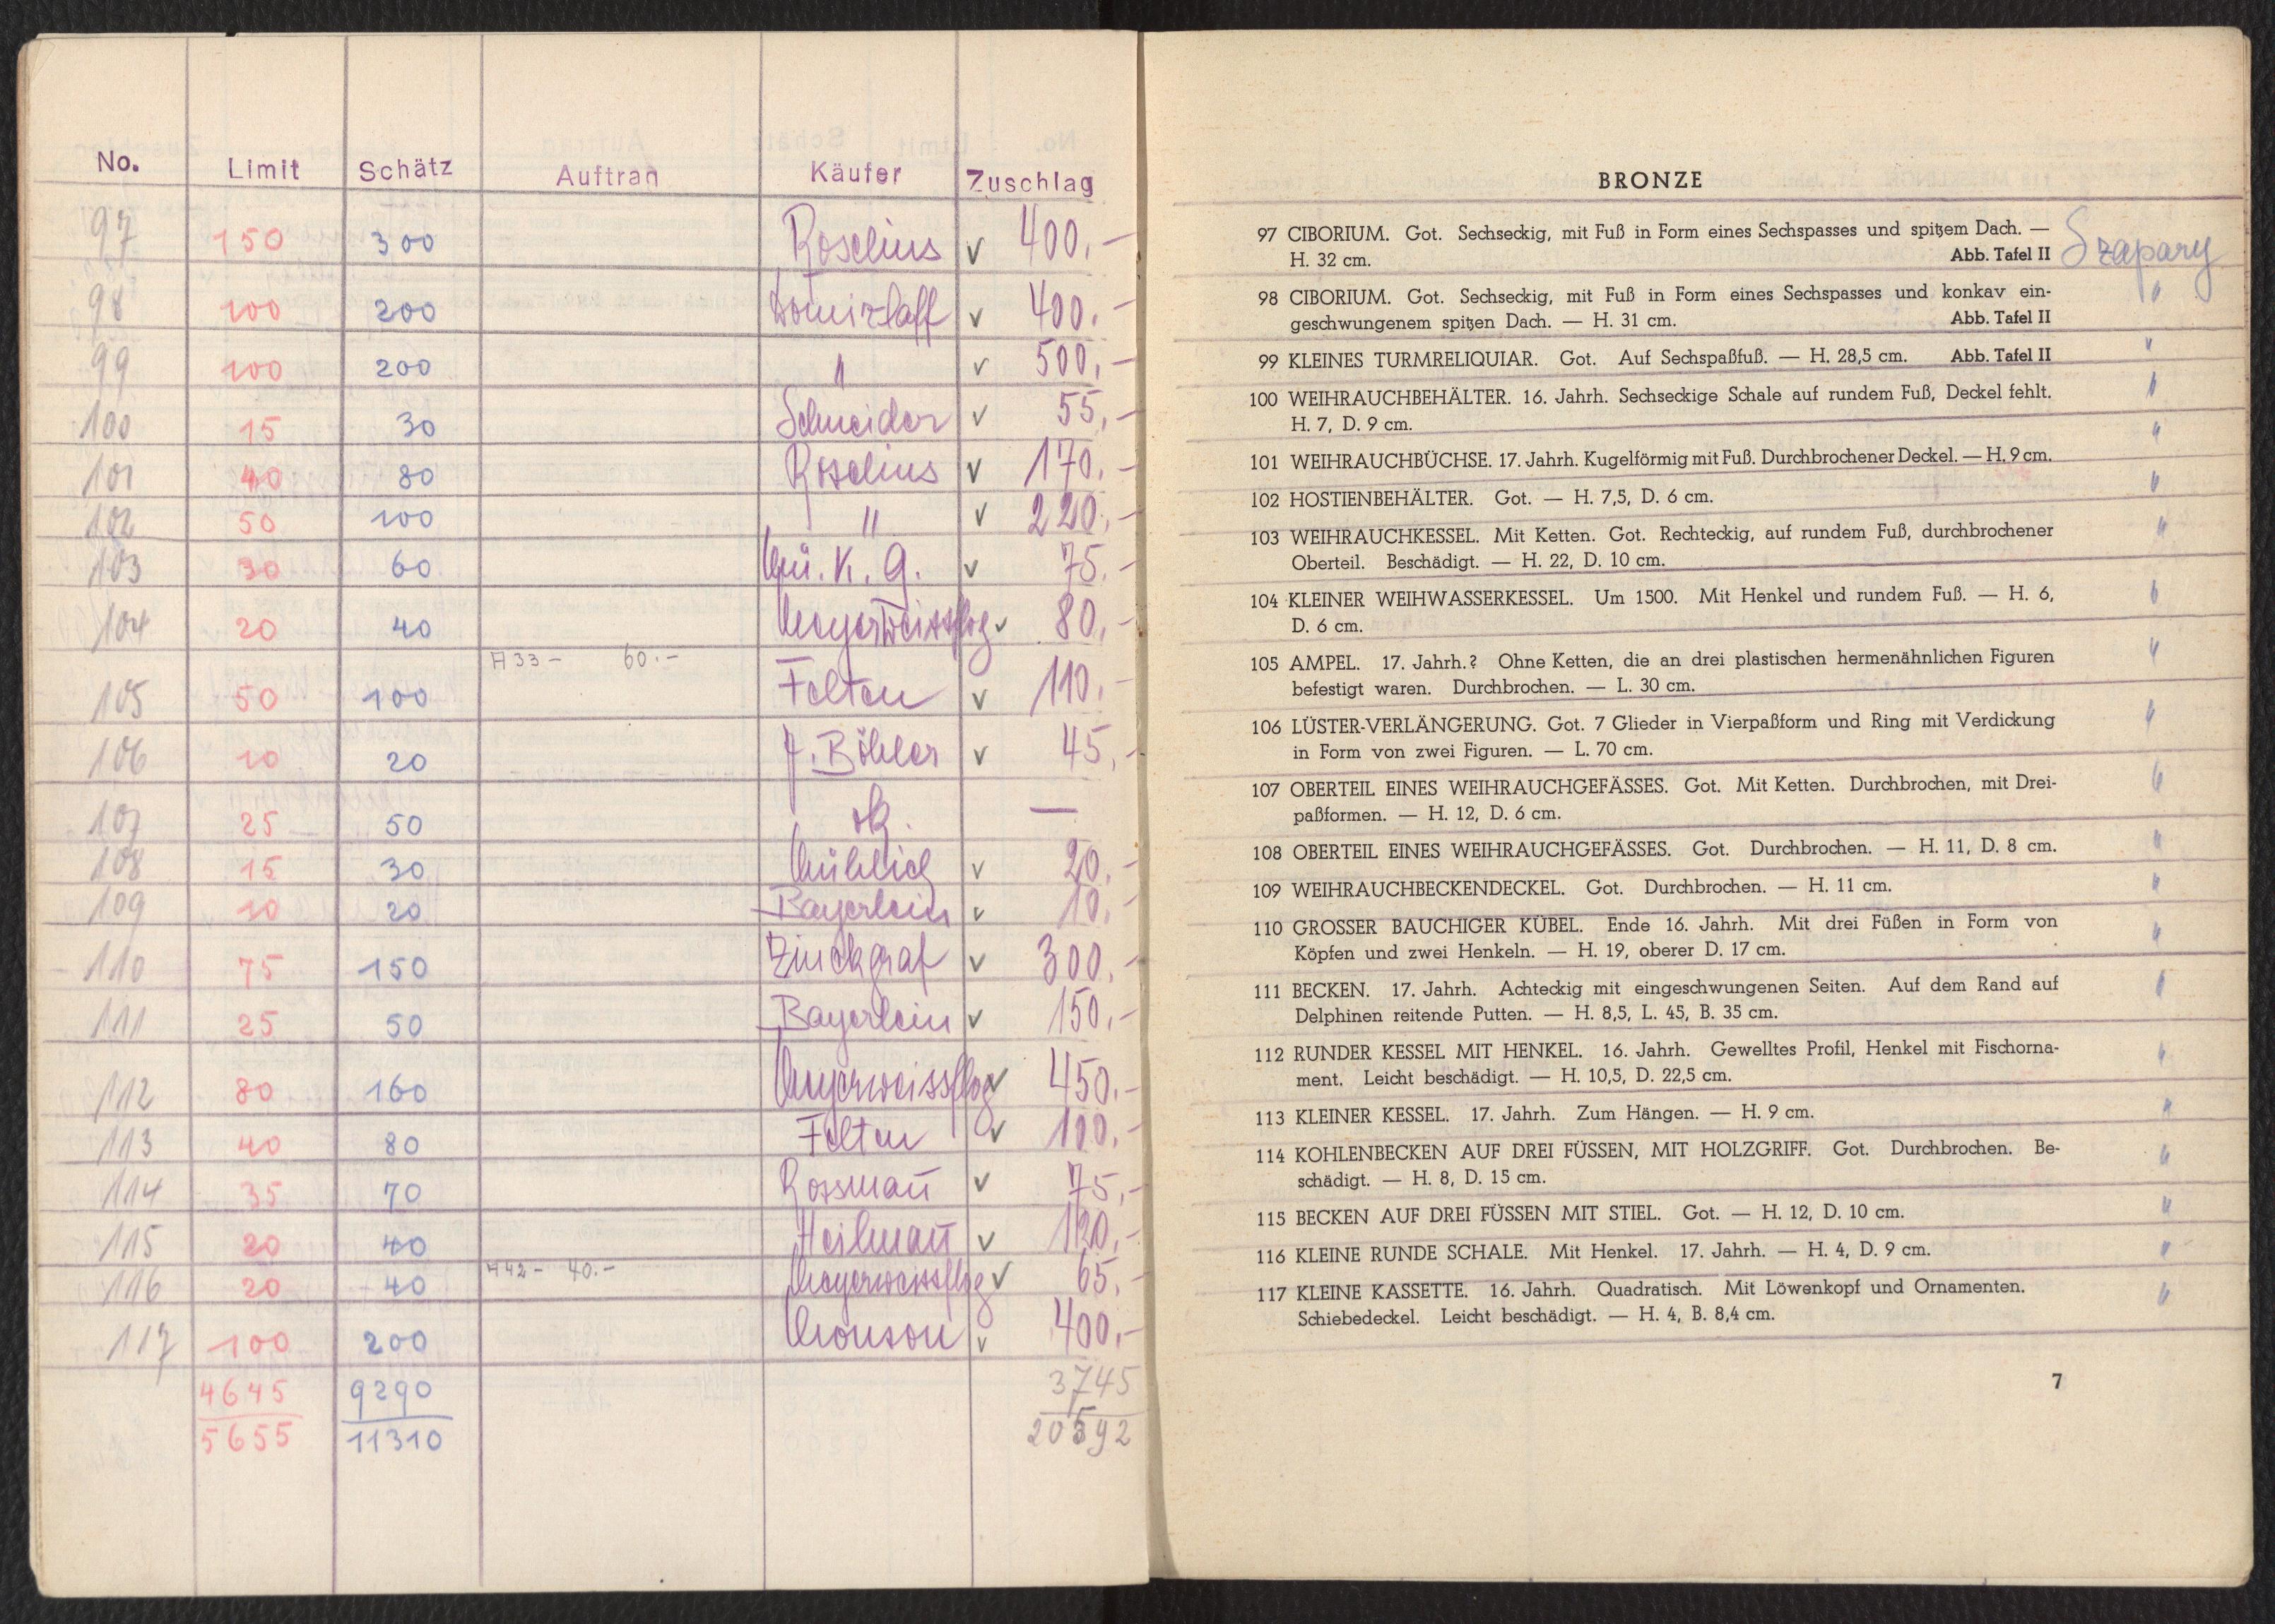 No. Limit Schätz Auftrag Käufer Zuschlag
97 150 300 Roselius v 400.-
98 100 200 Domizlaff v 400.-
99 100 200 " v 500,-
100 15 30 Schneider v 55,-
101 40 80 Roselius v 170.-
102 50 100 " v 220.-
103 30 60 Mü. K. G. v 75.-
104 20 40 Mayerweissflog v 80,-
H 33 - 60.-
105 50 100 Felten v 110.-
106 10 20 J. Böhler v 45,-
107 25 50 —
108 15 30 Mühlich v 20.-
109 10 20 Bayerlein v 10.-
110 75 150 Zinckgraf v 300.-
111 25 50 Bayerlein v 150,-
112 80 160 Mayerweissflog v 450.-
113 40 80 Felten v 100.-
114 35 70 Rossmañ v 75,-
115 20 40 Heilmañ v 120,-
H 42 - 40.-
116 20 40 Mayerweissflog v 65.-
117 100 200 Monson v 400,-
4645 9290 3745
5655 11310 20592
BRONZE
97 CIBORIUM. Got. Sechseckig, mit Fuß in Form eines Sechspasses und spitzem Dach. —
H. 32 cm. Abb. Tafel II Szapary
98 CIBORIUM. Got. Sechseckig, mit Fuß in Form eines Sechspasses und konkav ein- "
geschwungenem spitzen Dach. — H. 31 cm. Abb. Tafel II
99 KLEINES TURMRELIQUIAR. Got. Auf Sechspaßfuß. — H. 28,5 cm. Abb. Tafel II "
100 WEIHRAUCHBEHÄLTER. 16. Jahrh. Sechseckige Schale auf rundem Fuß, Deckel fehlt. "
H. 7, D. 9 cm.
101 WEIHRAUCHBÜCHSE. 17. Jahrh. Kugelförmig mit Fuß. Durchbrochener Deckel. — H. 9 cm. "
102 HOSTIENBEHÄLTER. Got. — H. 7,5, D. 6 cm. "
103 WEIHRAUCHKESSEL. Mit Ketten. Got. Rechteckig, auf rundem Fuß, durchbrochener "
Oberteil. Beschädigt. — H. 22, D. 10 cm.
104 KLEINER WEIHWASSERKESSEL. Um 1500. Mit Henkel und rundem Fuß. — H. 6, "
D. 6 cm.
105 AMPEL. 17. Jahrh.? Ohne Ketten, die an drei plastischen hermenähnlichen Figuren "
befestigt waren. Durchbrochen. — L. 30 cm.
106 LÜSTER-VERLÄNGERUNG. Got. 7 Glieder in Vierpaßform und Ring mit Verdickung "
in Form von zwei Figuren. — L. 70 cm.
107 OBERTEIL EINES WEIHRAUCHGEFÄSSES. Got. Mit Ketten. Durchbrochen, mit Drei- "
paßformen. — H. 12, D. 6 cm.
108 OBERTEIL EINES WEIHRAUCHGEFÄSSES. Got. Durchbrochen. — H. 11, D. 8 cm. "
109 WEIHRAUCHBECKENDECKEL. Got. Durchbrochen. — H. 11 cm. "
110 GROSSER BAUCHIGER KÜBEL. Ende 16. Jahrh. Mit drei Füßen in Form von "
Köpfen und zwei Henkeln. — H. 19, oberer D. 17 cm.
111 BECKEN. 17. Jahrh. Achteckig mit eingeschwungenen Seiten. Auf dem Rand auf "
Delphinen reitende Putten. — H. 8,5, L. 45, B. 35 cm.
112 RUNDER KESSEL MIT HENKEL. 16. Jahrh. Gewelltes Profil, Henkel mit Fischorna- "
ment. Leicht beschädigt. — H. 10,5, D. 22,5 cm.
113 KLEINER KESSEL. 17. Jahrh. Zum Hängen. — H. 9 cm. "
114 KOHLENBECKEN AUF DREI FÜSSEN, MIT HOLZGRIFF. Got. Durchbrochen. Be- "
schädigt. — H. 8, D. 15 cm.
115 BECKEN AUF DREI FÜSSEN MIT STIEL. Got. — H. 12, D. 10 cm. "
116 KLEINE RUNDE SCHALE. Mit Henkel. 17. Jahrh. — H. 4, D. 9 cm. "
117 KLEINE KASSETTE. 16. Jahrh. Quadratisch. Mit Löwenkopf und Ornamenten. "
Schiebedeckel. Leicht beschädigt. — H. 4, B. 8,4 cm.
7